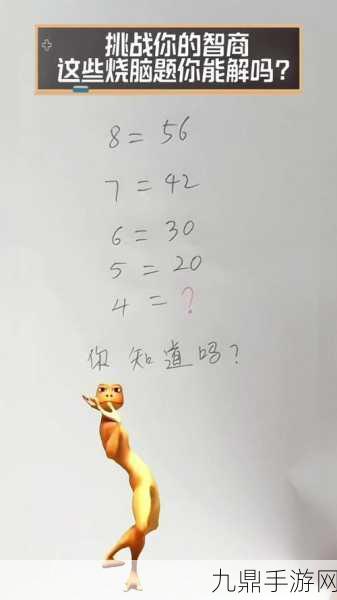 挑战你的智商
这些烧脑题你能解吗?
8 = 56
7 = 42
6 = 30
5 = 20
4 = ?
你知道吗?
九鼎手游网